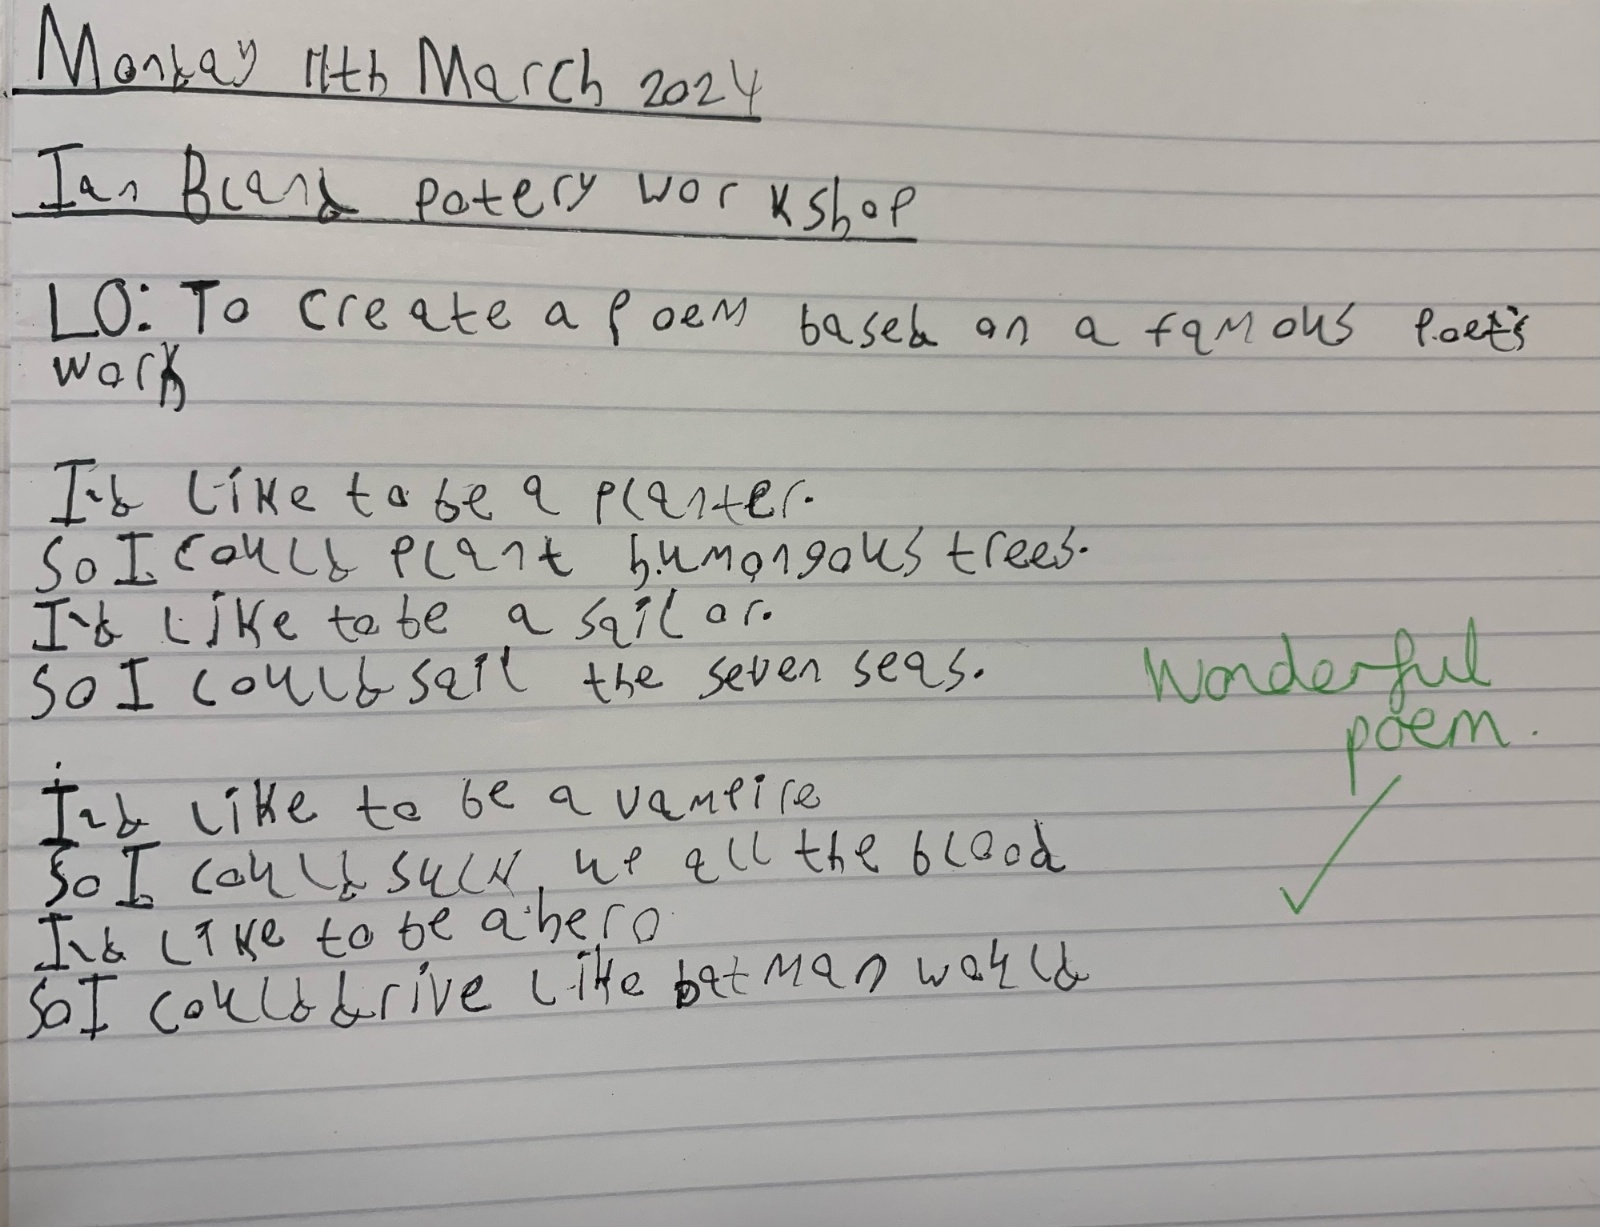 Monday 11th March 2024
Ian Bland potery workshop
LO: To create a poem based on a famous poet's
work
I'd like to be a planter.
So I could plant humongous trees.
I'd like to be a sailor.
So I could sail the seven seas.
Wonderful
poem.
I'd like to be a vampire
So I could suck up all the blood
I'd like to be a hero
So I could drive like batman would